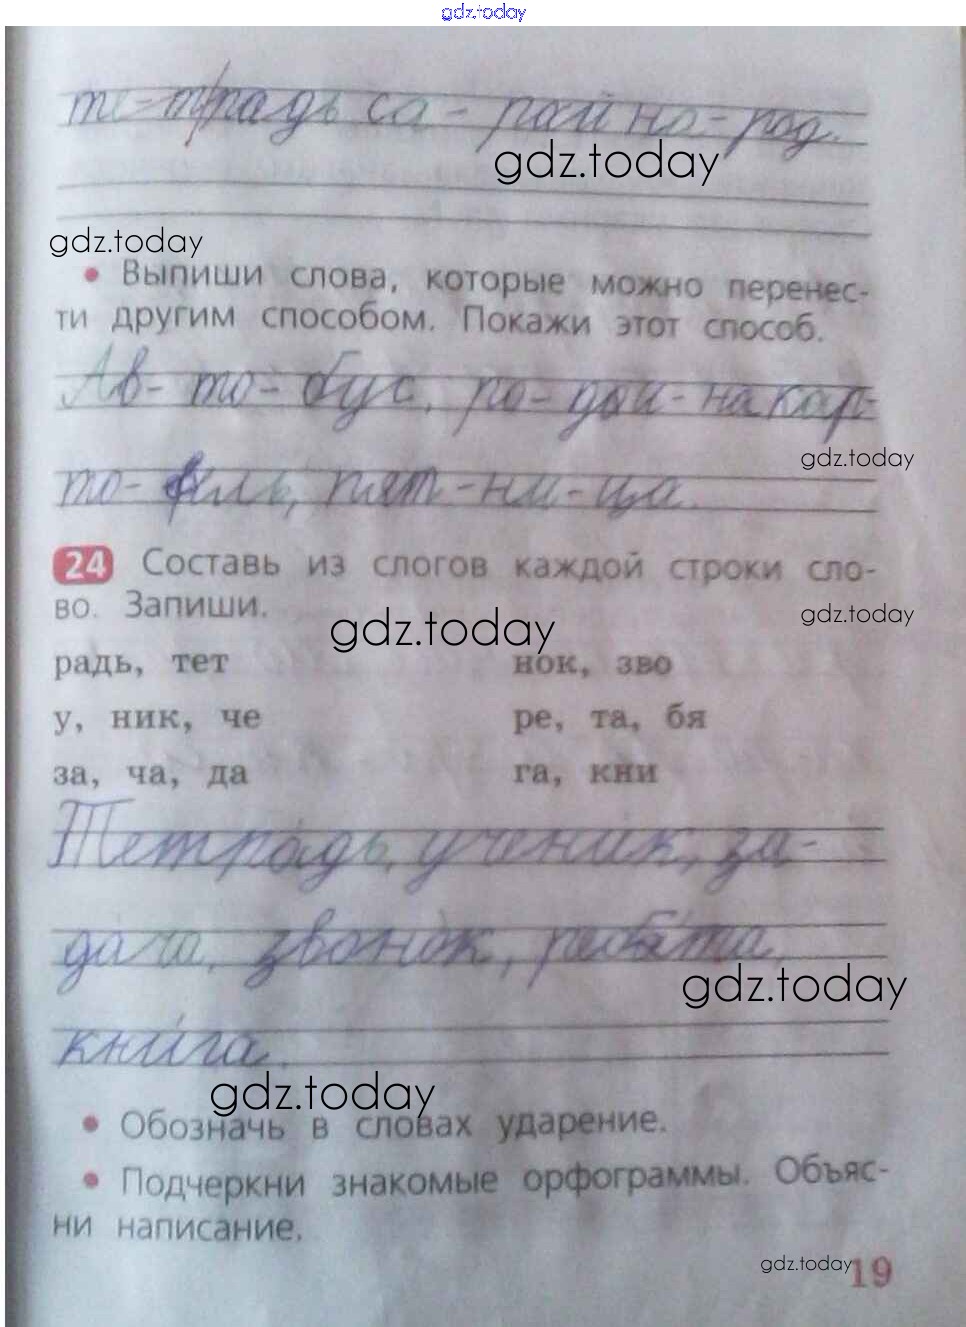 gdz.today
те-традь са - рай на - род.
gdz.today
gdz.today
• Выпиши слова, которые можно перенес-
ти другим способом. Покажи этот способ.
Ав- то- бус, ро- дой - на кар-
gdz.today
то- фель, пят - ни - ца.
24 Составь из слогов каждой строки сло-
во. Запиши.
gdz.today
gdz.today
радь, тет нок, зво
у, ник, че ре, та, бя
за, ча, да га, кни
Тетрадь, ученик, за-
дача, звонок, ребята,
gdz.today
книга.
gdz.today
• Обозначь в словах ударение.
• Подчеркни знакомые орфограммы. Объяс-
ни написание.
gdz.today
19